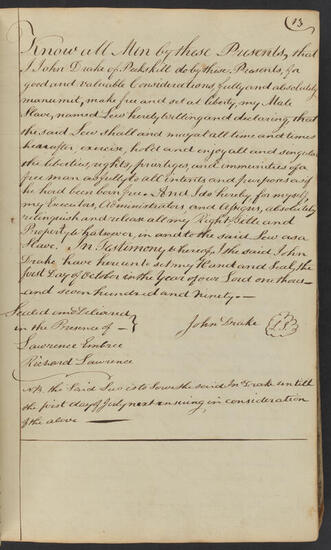 13
Know all Men by these Presents, that
I John Drake of Peekskill do by these, Presents, for
good and valuable Considerations, fully and absolutely
manumit, make free and set at liberty, my Male
Slave, named Lew hereby willing and declaring, that
the said Lew shall and may at all time and times
hereafter exercise, hold and enjoy all and singular
the liberties, rights, privileges, and immunities of a
free man as fully to all intents and purposes as if
he had been born free And I do hereby for myself
my Executors, Administrators and Assigns, absolutely
relinquish and release all my Right Title and
Property whatsoever, in and to the said Lew as a
Slave. In Testimony whereof I the said John
Drake have hereunto set my Hand and Seal, the
first Day of October in the Year of our Lord one thou-
-and seven hundred and Ninety
Sealed and Delivered
in the Presence of
John Drake LS
Lawrence Embree
Richard Lawrence
NB. the Said Lew is to Serve the said Jno. Drake untill
the first day of July next ensuing, in consideration
of the above